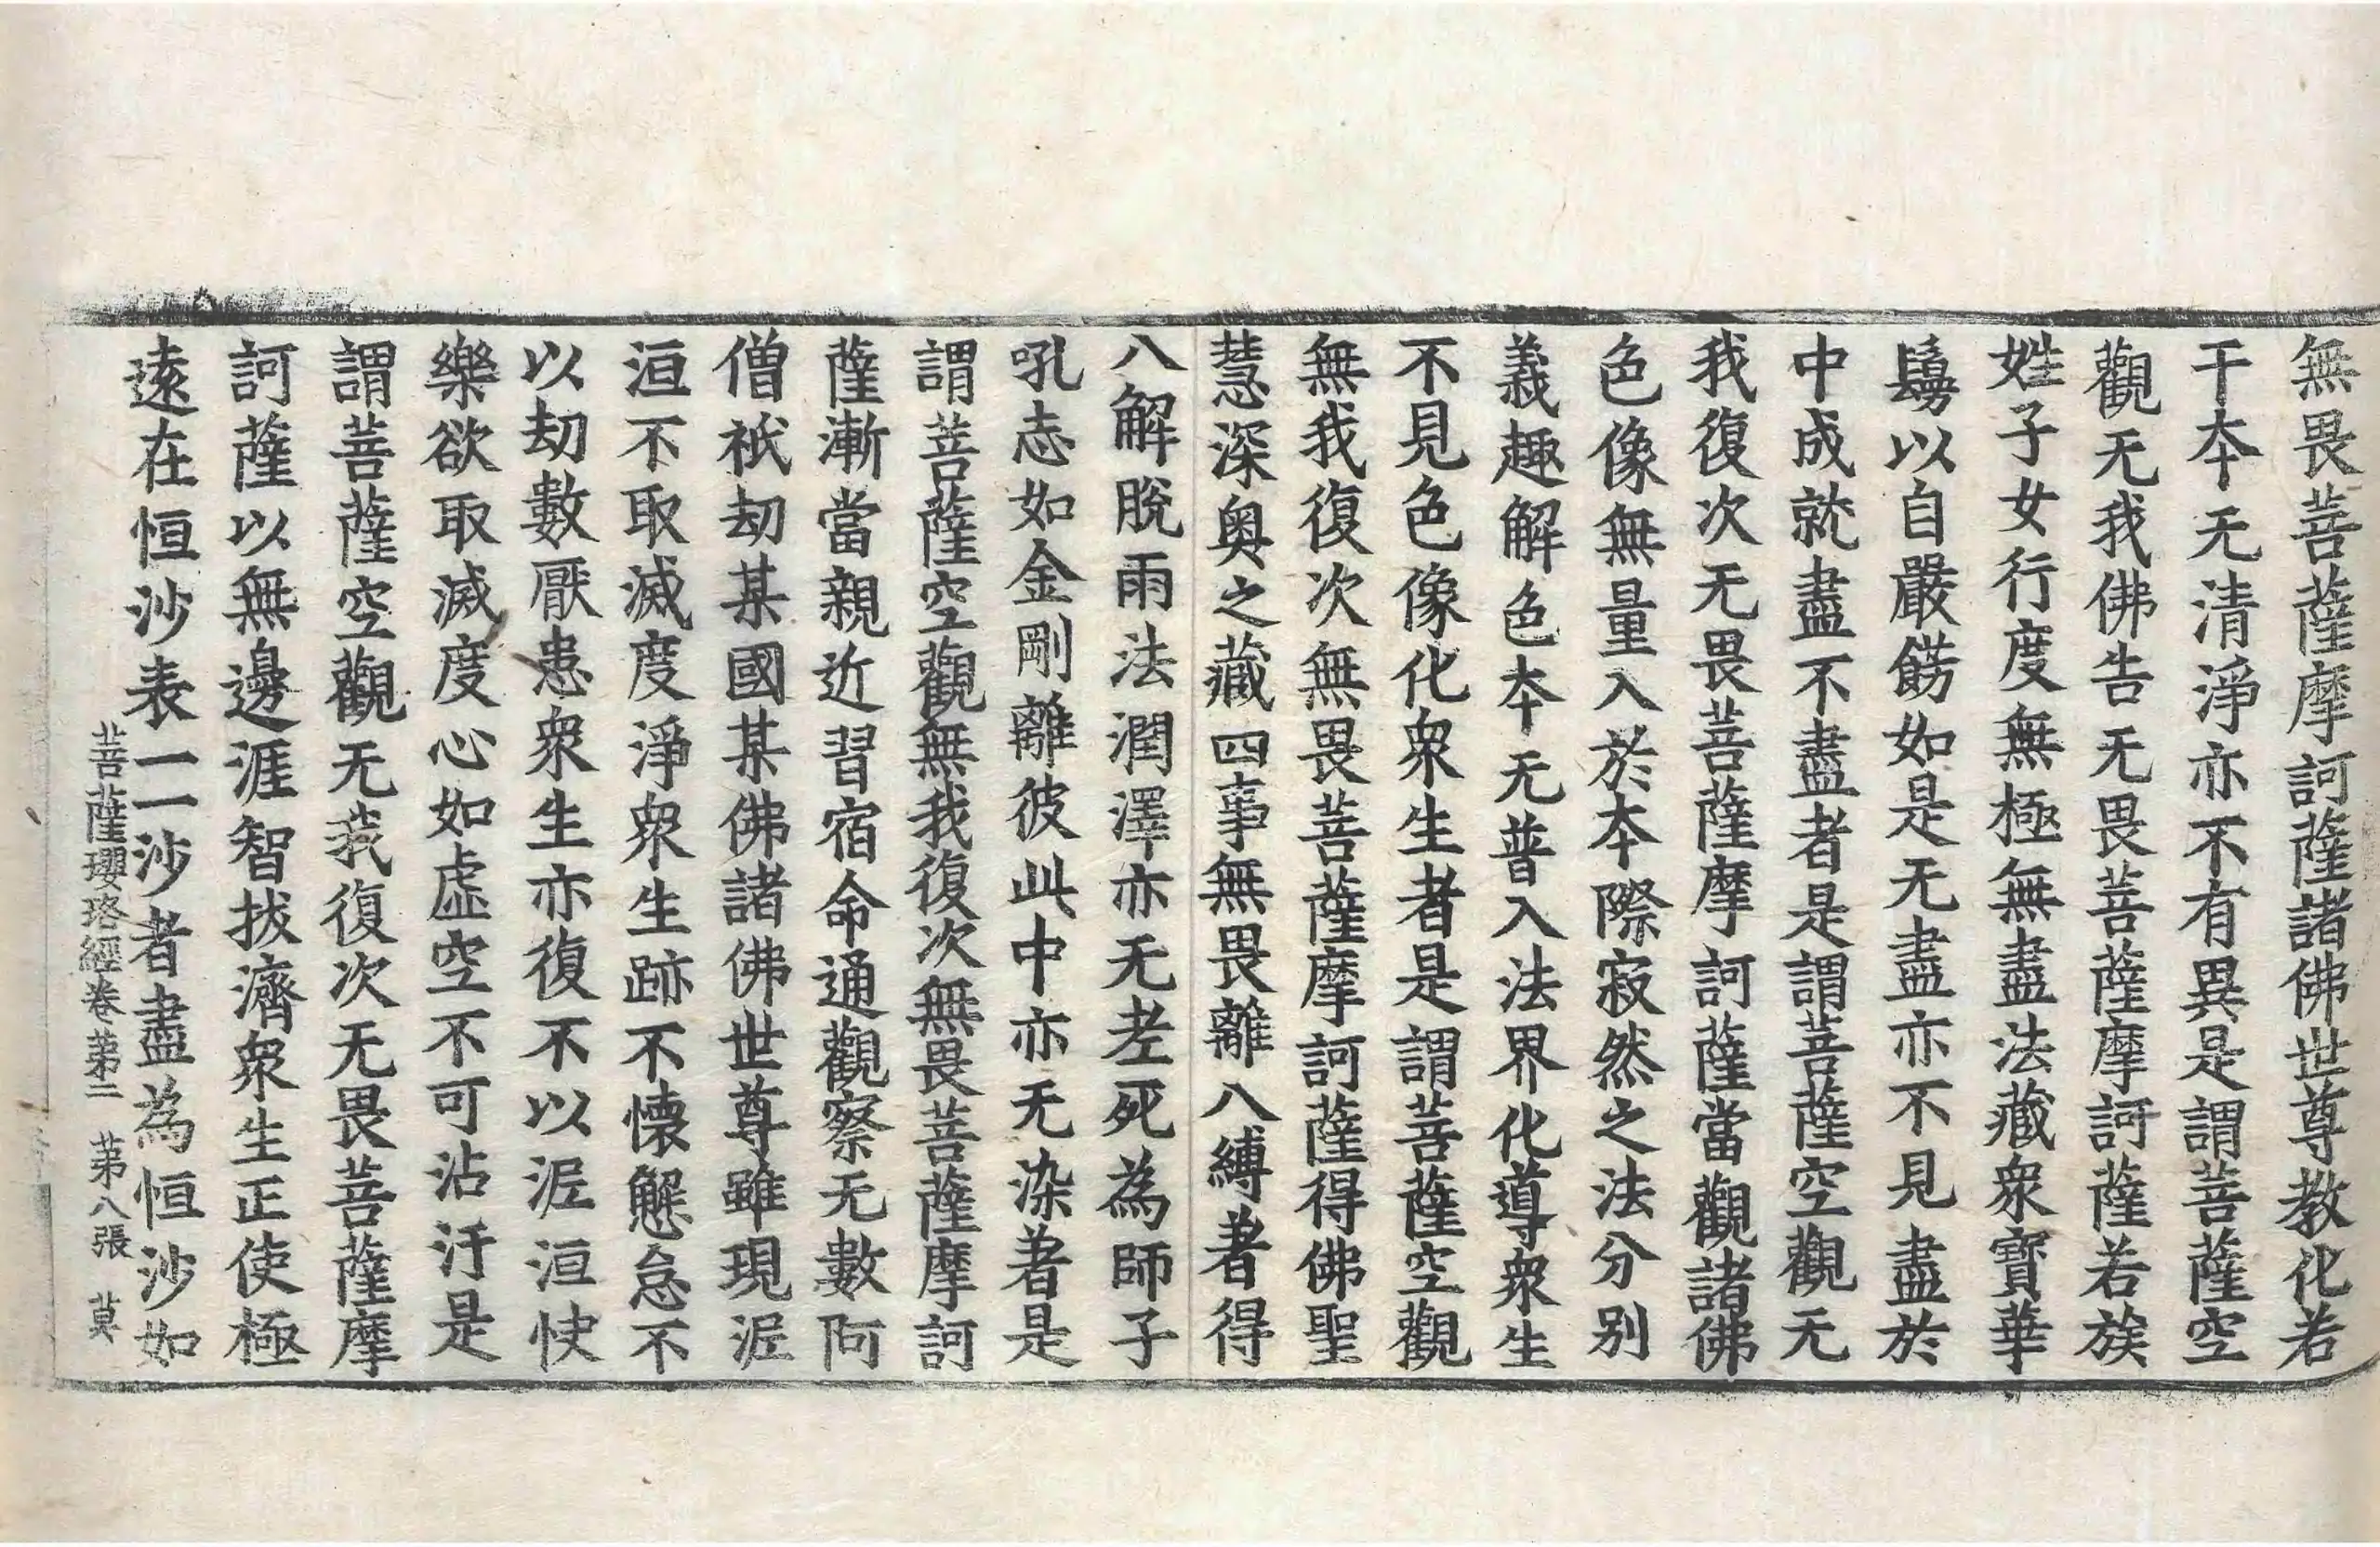 無畏菩薩摩訶薩諸佛世尊教化若
干本无清淨亦不有異是謂菩薩空
觀无我佛告无畏菩薩摩訶薩若族
姓子女行度無極無盡法藏衆寶華
鬘以自嚴餝如是无盡亦不見盡於
中成就盡不盡者是謂菩薩空觀无
我復次无畏菩薩摩訶薩當觀諸佛
色像無量入於本際寂然之法分別
義趣解色本无普入法界化導衆生
不見色像化衆生者是謂菩薩空觀
無我復次無畏菩薩摩訶薩得佛聖
慧深奥之藏四事無畏離八縛著得
八解脫雨法潤澤亦无老死為師子
吼志如金剛離彼此中亦无染著是
謂菩薩空觀無我復次無畏菩薩摩訶
薩漸當親近習宿命通觀察无數阿
僧祇劫某國某佛諸佛世尊雖現泥
洹不取滅度淨衆生跡不懷懈怠不
以劫數厭患衆生亦復不以泥洹快
樂欲取滅度心如虛空不可沾汙是
謂菩薩空觀无我復次无畏菩薩摩
訶薩以無邊涯智拔濟衆生正使極
遠在恒沙表一一沙者盡為恒沙如
菩薩瓔珞經卷苐二 苐八張 莫